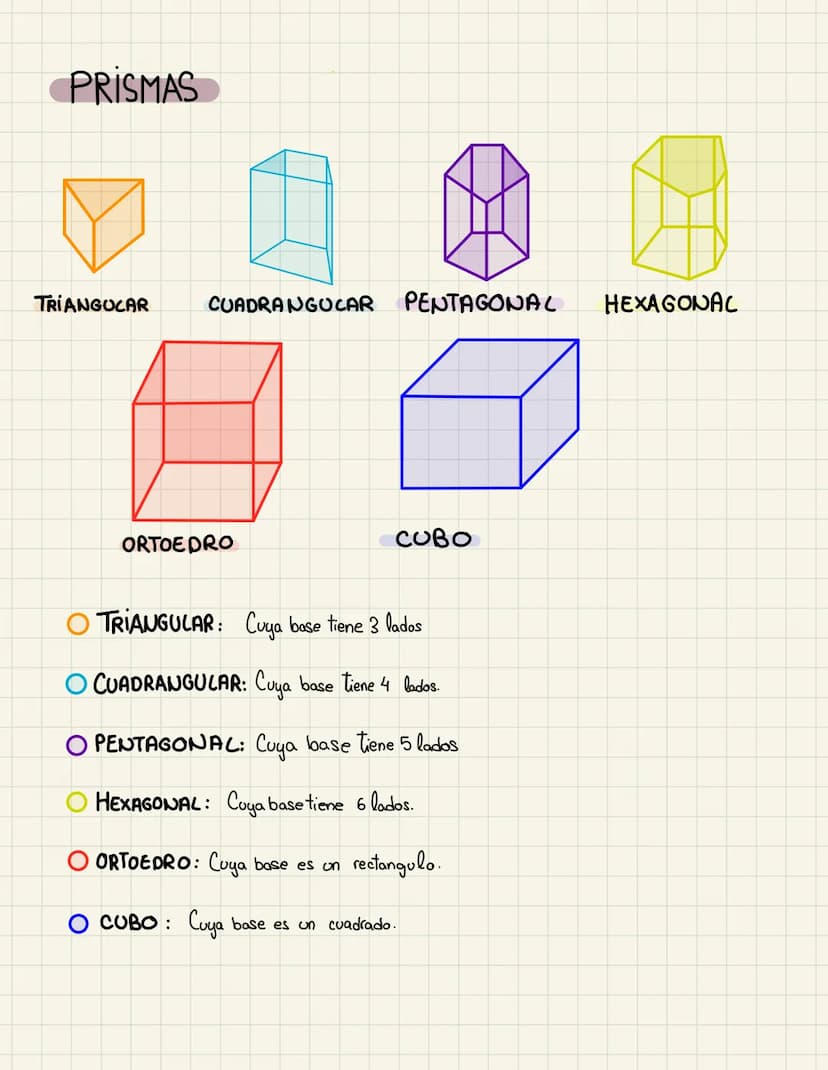 PRISMAS
TRIANGULAR CUADRANGULAR PENTAGONAL HEXAGONAL
ORTOEDRO CUBO
TRIANGULAR: Cuya base tiene 3 lados
CUADRANGULAR: Cuya base tiene 4 lados.
PENTAGONAL: Cuya base tiene 5 lados
HEXAGONAL: Cuya base tiene 6 lados.
ORTOEDRO: Cuya base es un rectangulo.
CUBO: Cuya base es un cuadrado.